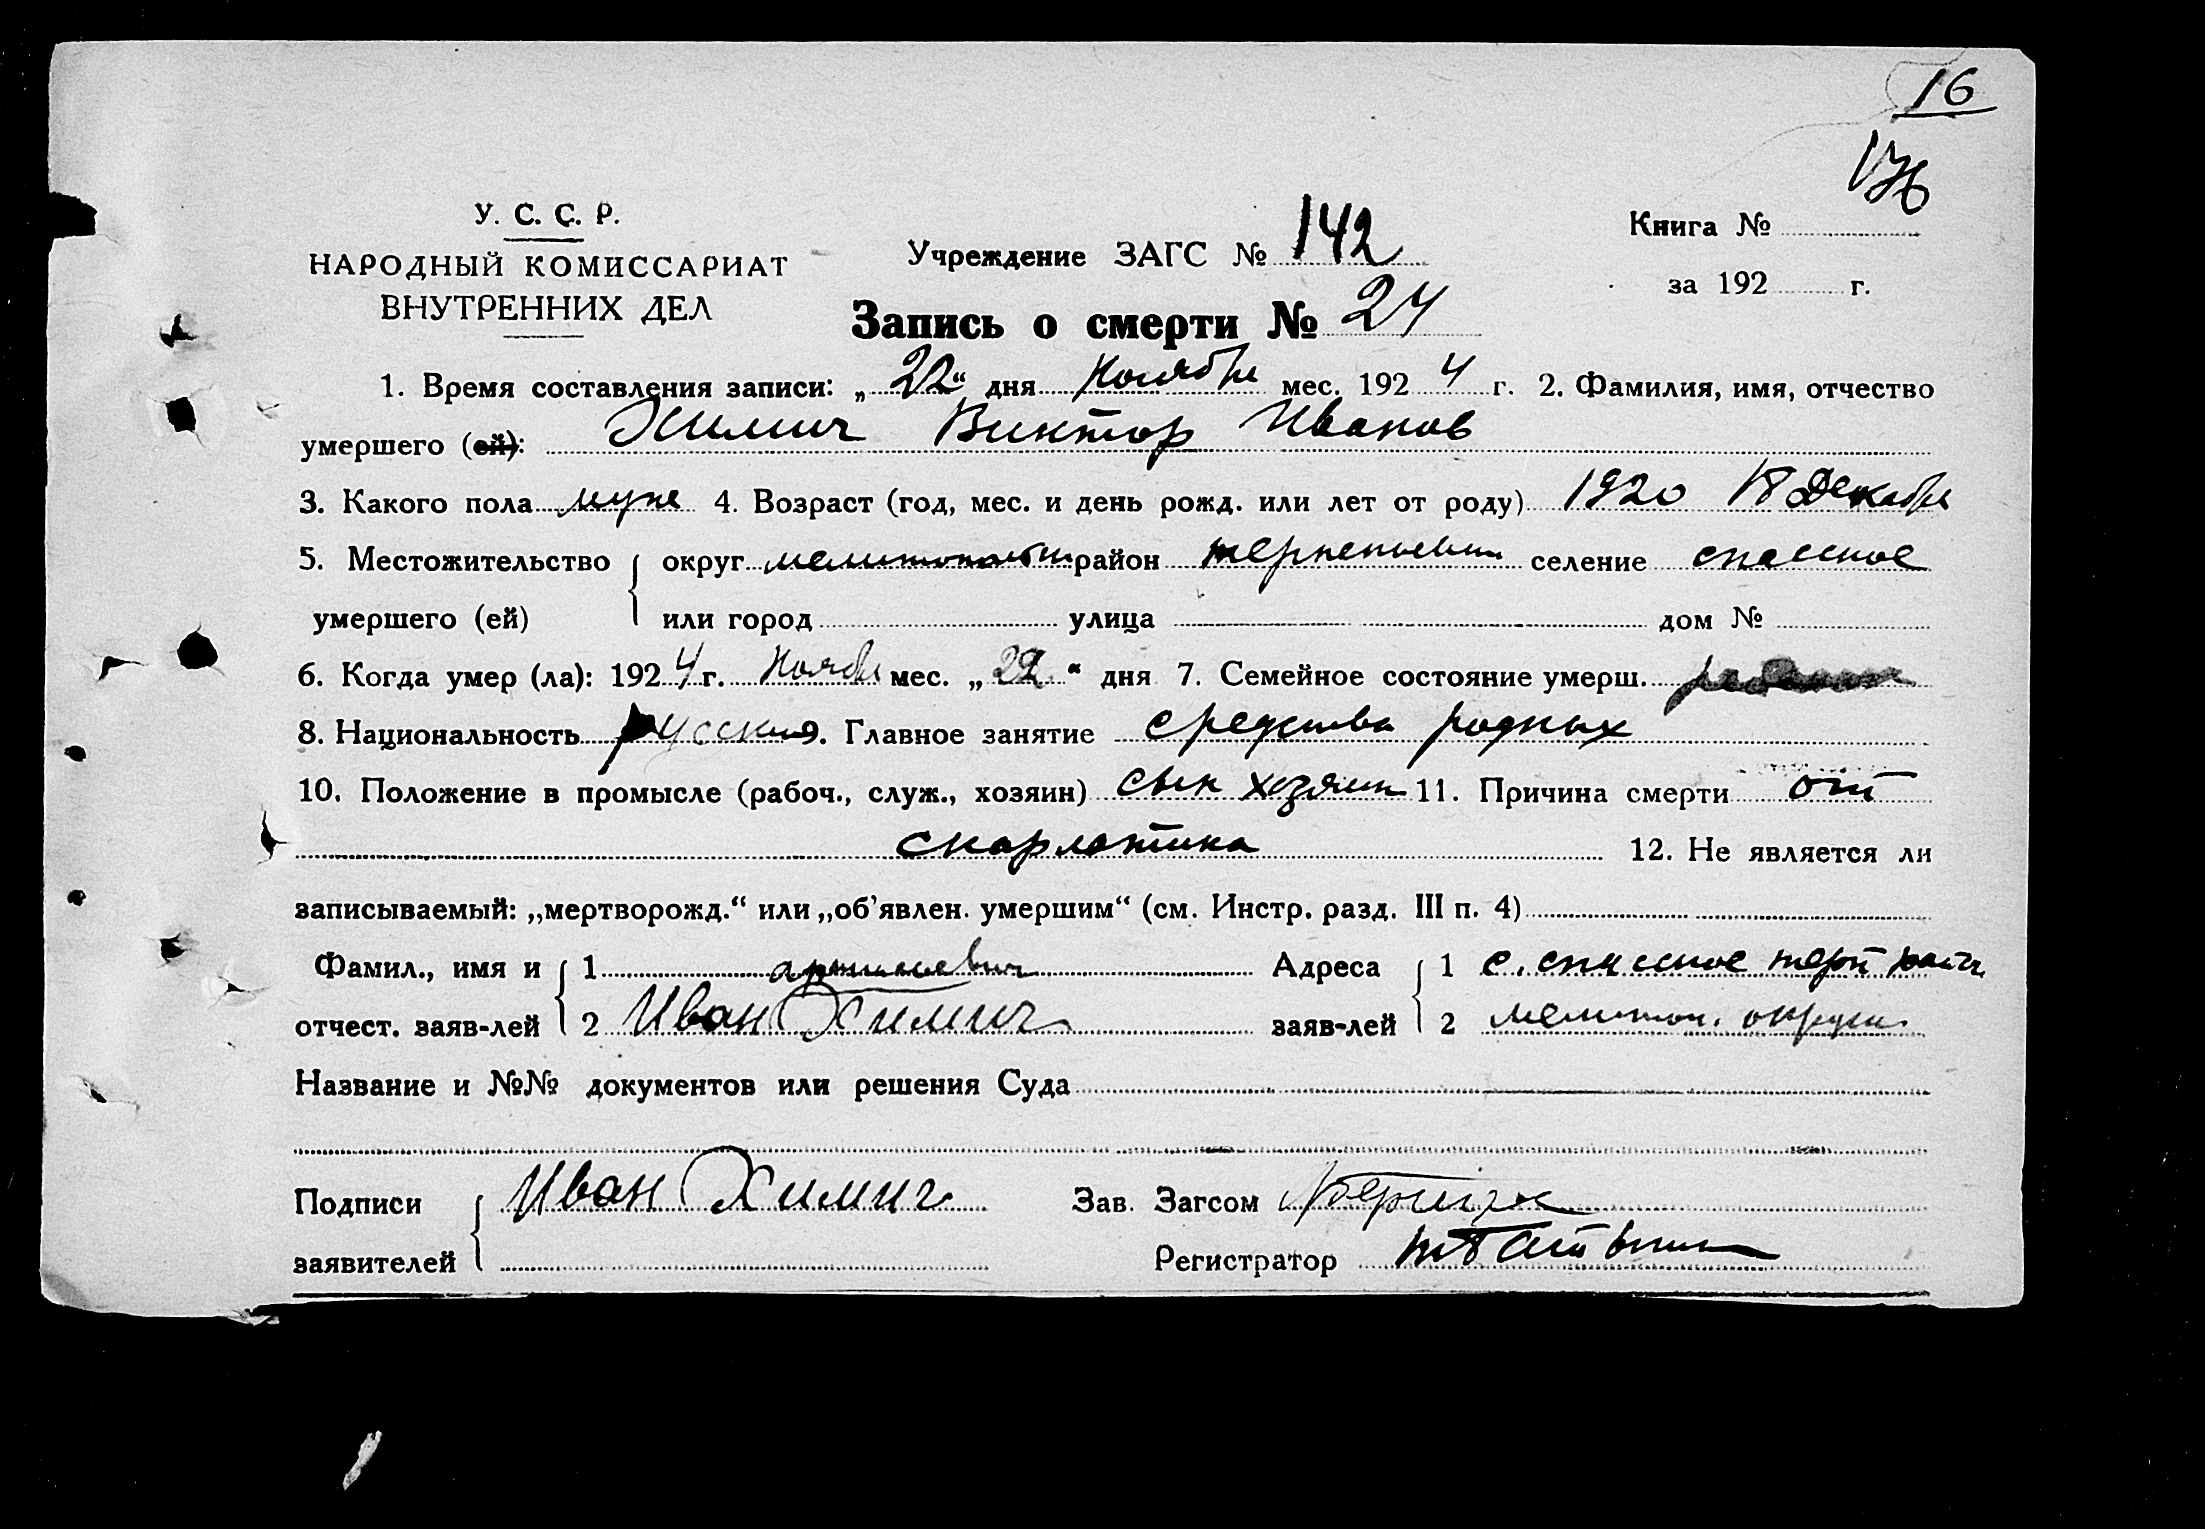 16
176
У. С. С. Р.
НАРОДНЫЙ КОМИССАРИАТ
ВНУТРЕННИХ ДЕЛ
Учреждение ЗАГС № 142
Книга №
за 192 г.
Запись о смерти № 24
1. Время составления записи: „22“ дня Ноября мес. 1924 г. 2. Фамилия, имя, отчество
умершего (ей): Химич Виктор Иванов
3. Какого пола муж 4. Возраст (год, мес. и день рожд. или лет от роду) 1920 18 Декабря
5. Местожительство округ район селение спасское
умершего (ей) или город улица дом №
6. Когда умер (ла): 1924 г. Ноября мес. „22“ дня 7. Семейное состояние умерш.
8. Национальность русский 9. Главное занятие средства родных
10. Положение в промысле (рабоч., служ., хозяин) сын хозяин 11. Причина смерти от
скарлатина 12. Не является ли
записываемый: „мертворожд.“ или „об'явлен. умершим“ (см. Инстр. разд. III п. 4)
Фамил., имя и 1 Адреса 1 с. спасское терп
отчест. заяв-лей 2 Иван Химич заяв-лей 2 мелитоп. округа
Название и №№ документов или решения Суда
Подписи Иван Химич Зав. Загсом
заявителей Регистратор